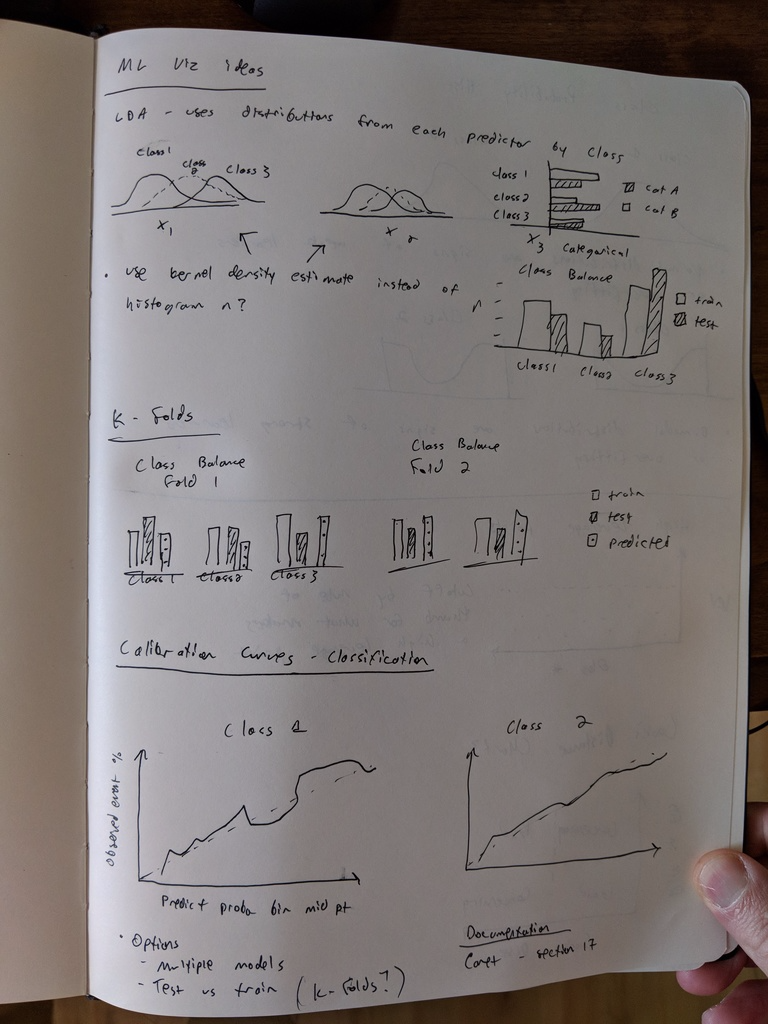 ML Viz ideas
LDA - uses distributions from each predictor by class
Class 1
Class 2
Class 3
X1
X2
class 1
class 2
Class 3
cat A
cat B
X3 categorical
• use kernel density estimate instead of
histogram n?
Class Balance
n
train
test
Class1
Class2
Class3
K - Folds
Class Balance
Fold 1
Class Balance
Fold 2
train
test
predicted
Class 1
Class2
Class 3
Calibration Curves - Classification
Class 1
Class 2
observed event %
Predict proba bin mid pt
• Options
- Multiple models
- Test vs train (K-Folds?)
Documentation
Caret - section 17